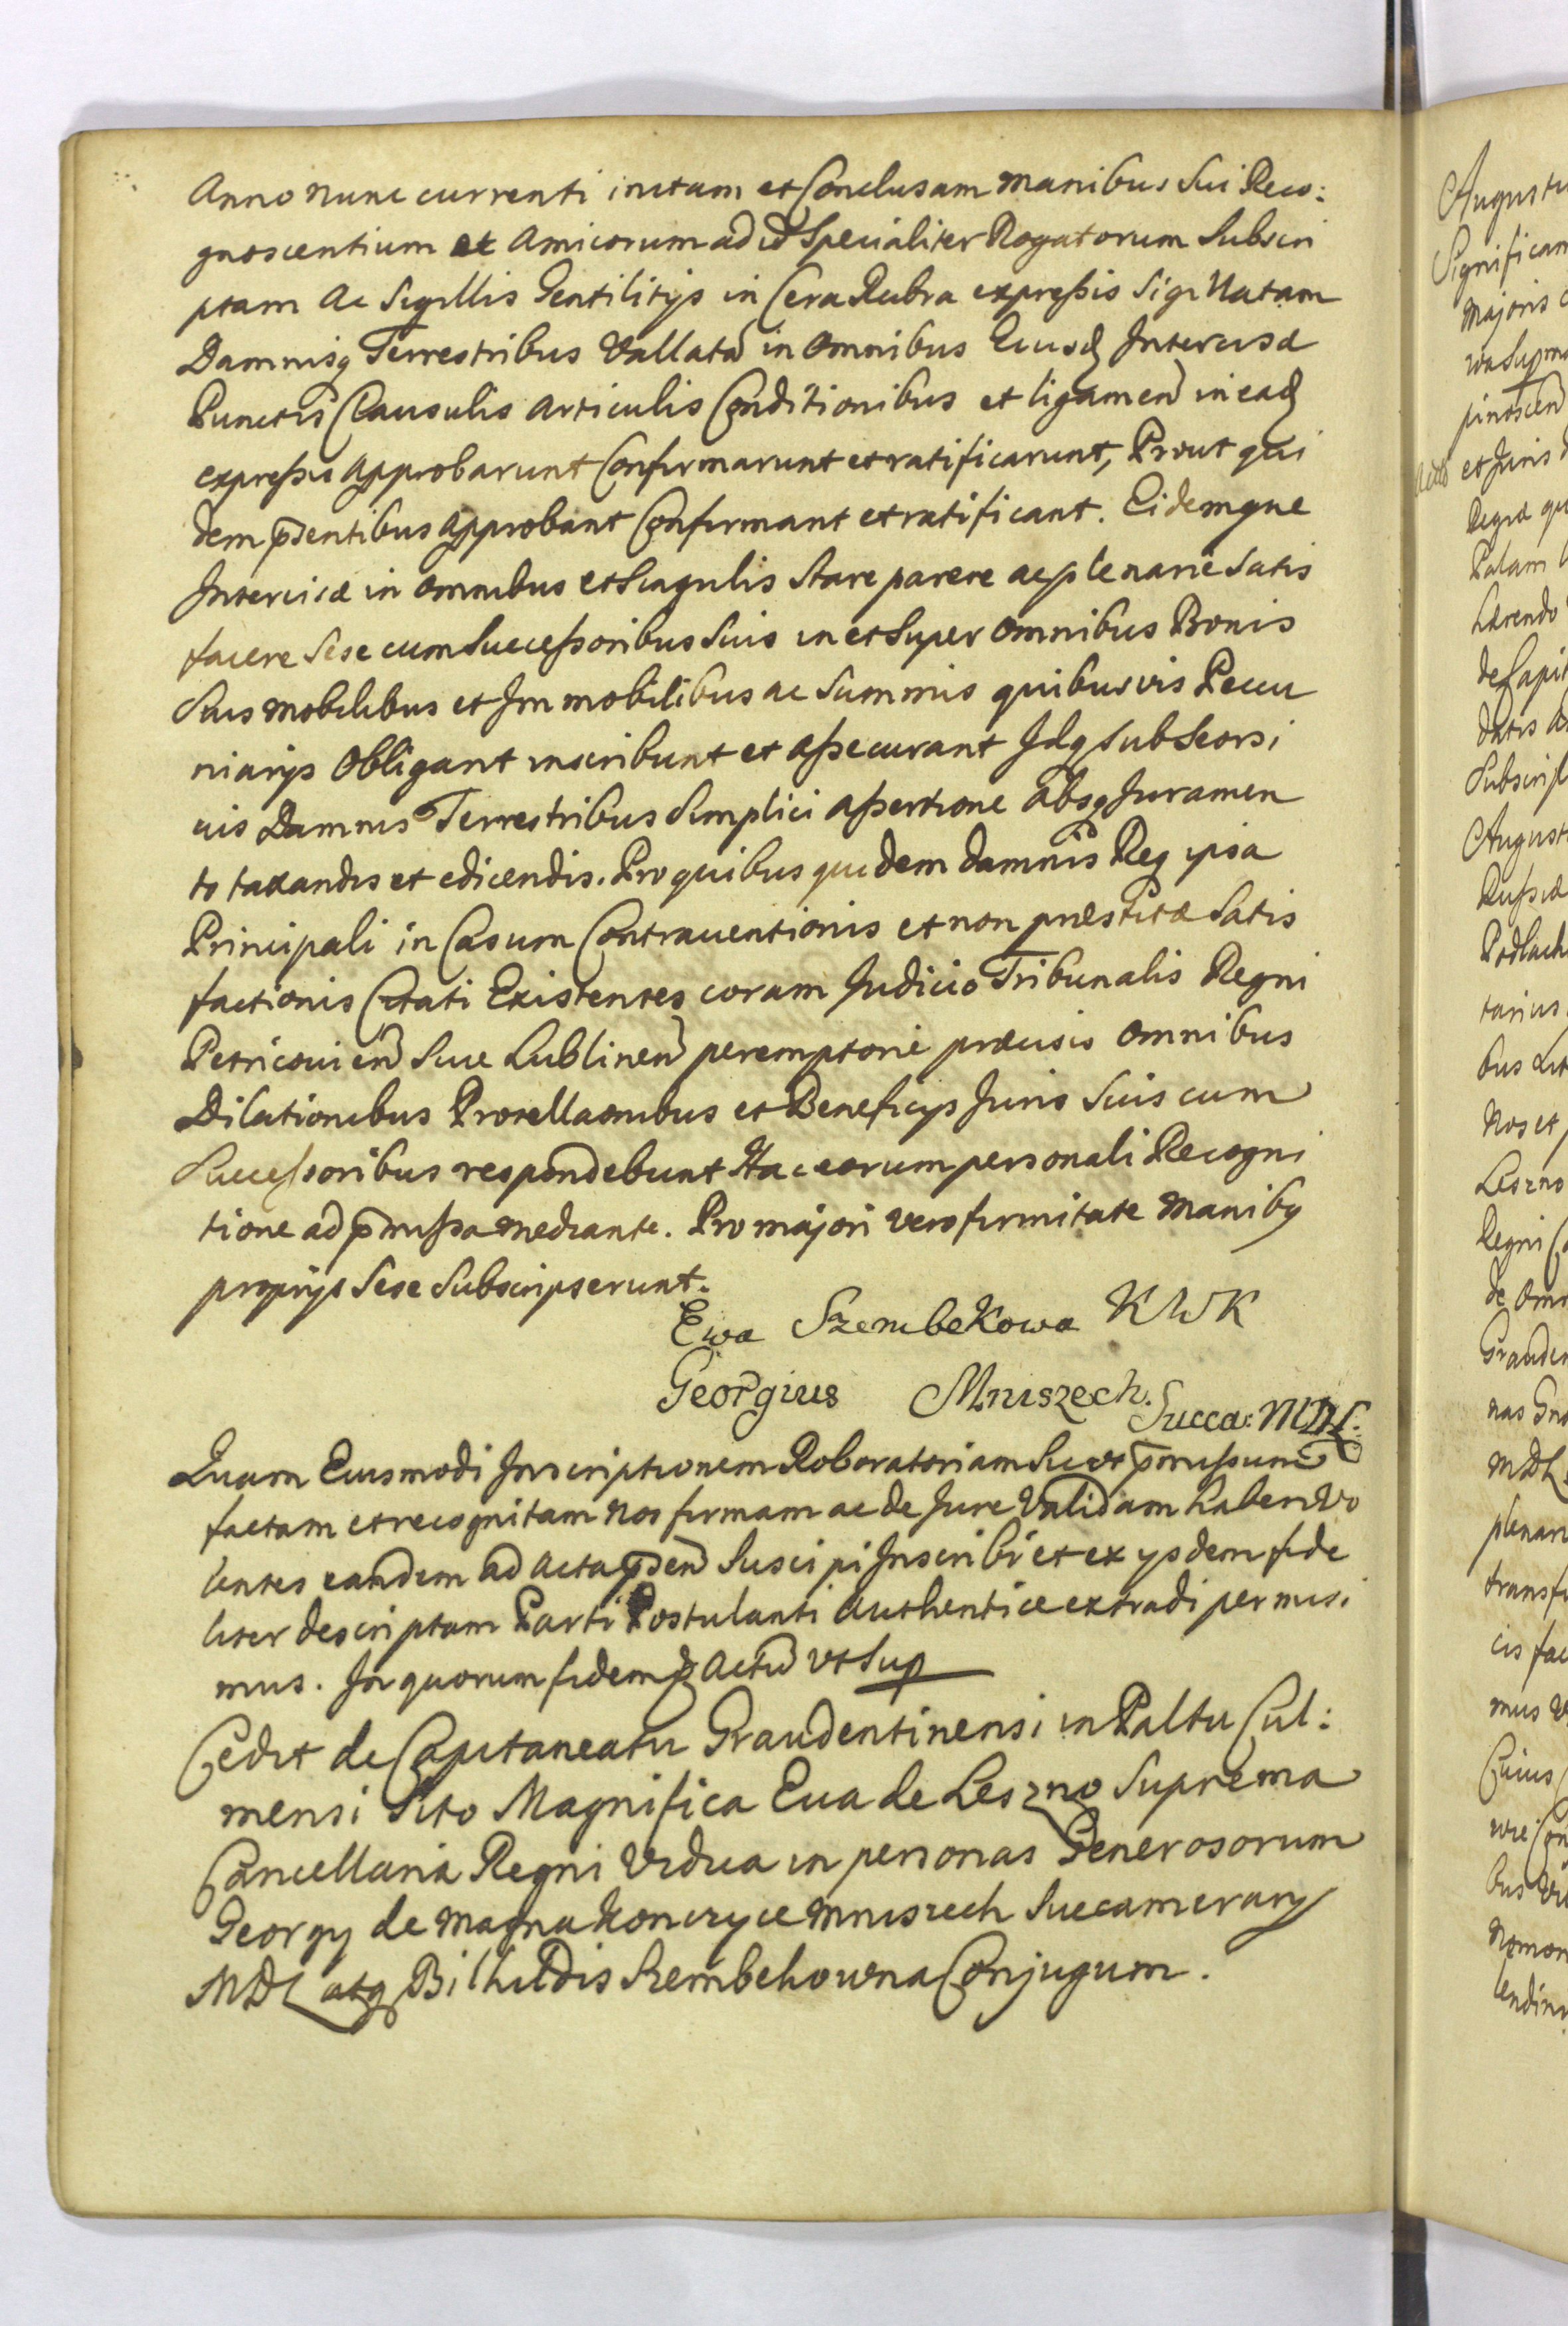 Anno nunc currenti initam et Conclusam manibus Sui Reco:
gnoscentium et Amicorum ad id Specialiter Rogatorum Subscri
ptam Ac Sigillis Gentilitijs in Cera Rubra expreßis Sigillatam
Damnisq Terrestribus Vallatā in Omnibus Eiusd Intercisæ
Punctis Clausulis Articulis Conditionibus et ligamen̄ in ead
expreßis Approbarunt Confirmarunt et ratificarunt, Prout qui
dem p̄sentibus Approbant Confirmant et ratificant. Eidemque
Intercisæ in Omnibus et Singulis Stare parere ac plenarie Satis
facere Sese cum Succeßoribus Suis in et Super Omnibus Bonis
Suis Mobilibus et Immobilibus ac Summis quibusvis Pecu
niarijs Obligant inscribunt et Aßecurant Idq sub Seorsi
vis Damnis Terrestribus Simplici Aßertione Absq Juramen
to taxandis et edicendis. Pro quibus quidem damnis Req ipsa
Principali in Casum Contraventionis et non præstitæ Satis
factionis Citati Existentes coram Judicio Tribunalis Regni
Petricovien̄ Sive Lublinen̄ peremptorie præcisis Omnibus
Dilationibus Procellaonibus et Beneficijs Juris Suis cum
Succeßoribus respondebunt Hac eorum personali Recogni
tione ad p̄mißa mediante. Pro majori vero firmitate Manibq
proprijs Sese Subscripserunt.
Ewa Szembekowa KWK
Georgius Mniszech. Succa: MDL:
Quam Eiusmodi Inscriptionem Roboratoriam Sicut p̄mißum
factam et recognitam nos firmam ac de Jure Validam haberi Vo
lentes eandem ad Acta p̄sen̄ Suscipi Inscribi et ex ijsdem fide
liter descriptam Parti Postulanti Authentice extradi permisi
mus. In quorum fidem Actū vt Sup
Cedit de Capitaneatu Graudentinensi in Paltu Cul:
mensi Sito Magnifica Eua de Leszno Suprema
Cancellaria Regni Vidua in personas Generosorum
Georgij de Magna Konczyce Mniszech Succamerarij
MDL atq Bilhildis Szembekowna Conjugum.